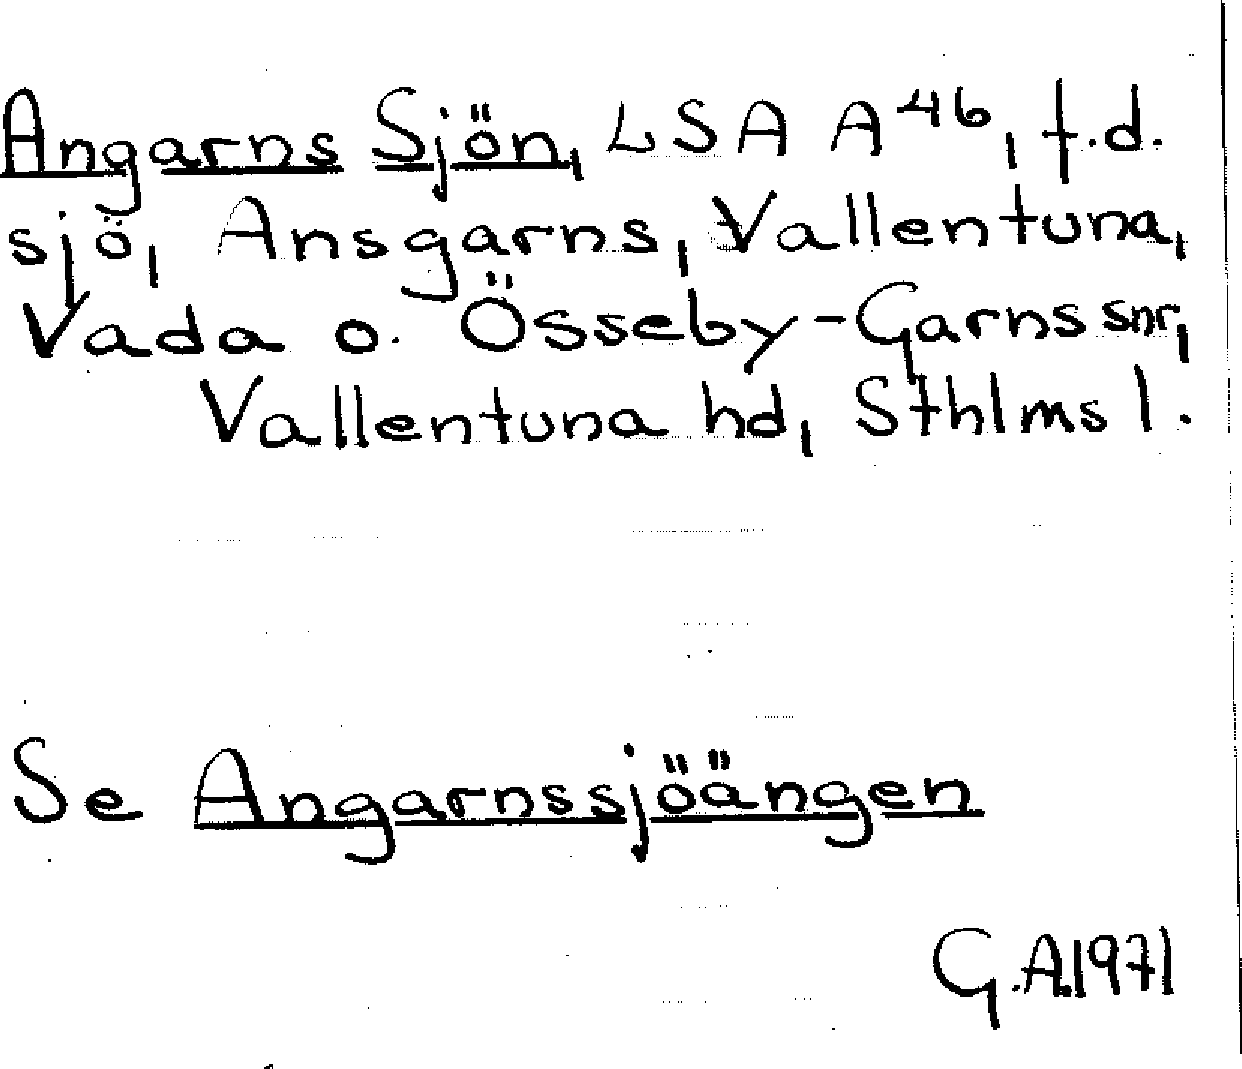 Angarns Sjön, LSA A⁴⁶, f.d.
sjö, Ansgarns, Vallentuna,
Vada o. Össeby-Garns snr,
Vallentuna hd, Sthlms l.
Se Angarnssjöängen
G.A.1971